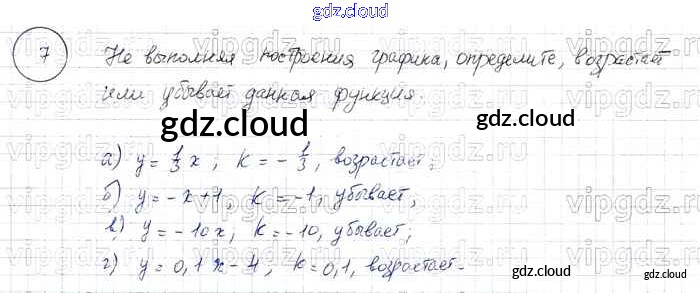 gdz.cloud
7 Не выполняя построения графика, определите, возрастает
или убывает данная функция:
gdz.cloud gdz.cloud
а) y = 1/3 x; k = - 1/3, возрастает;
б) y = - x + 1, k = -1, убывает,
в) y = -10x, k = -10, убывает;
г) y = 0,1x - 4, k = 0,1, возрастает.
gdz.cloud gdz.cloud